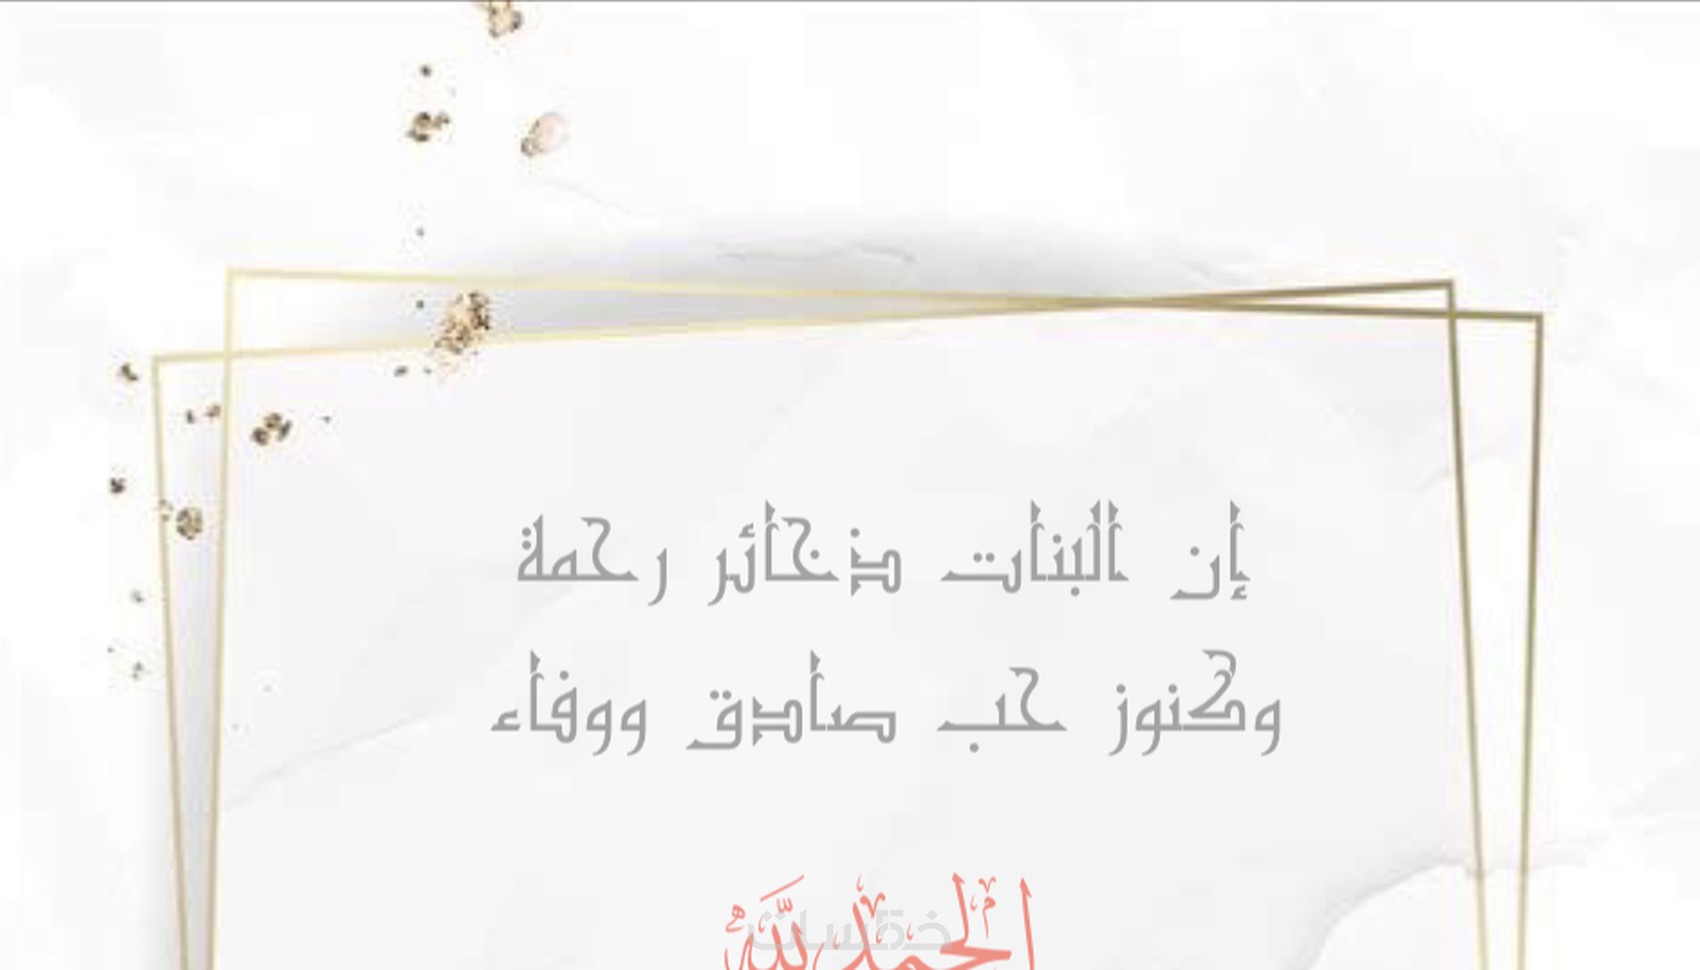 إن البنات ذخائر رحمة
وكنوز حب صادق ووفاء
الحمد لله
خمسات